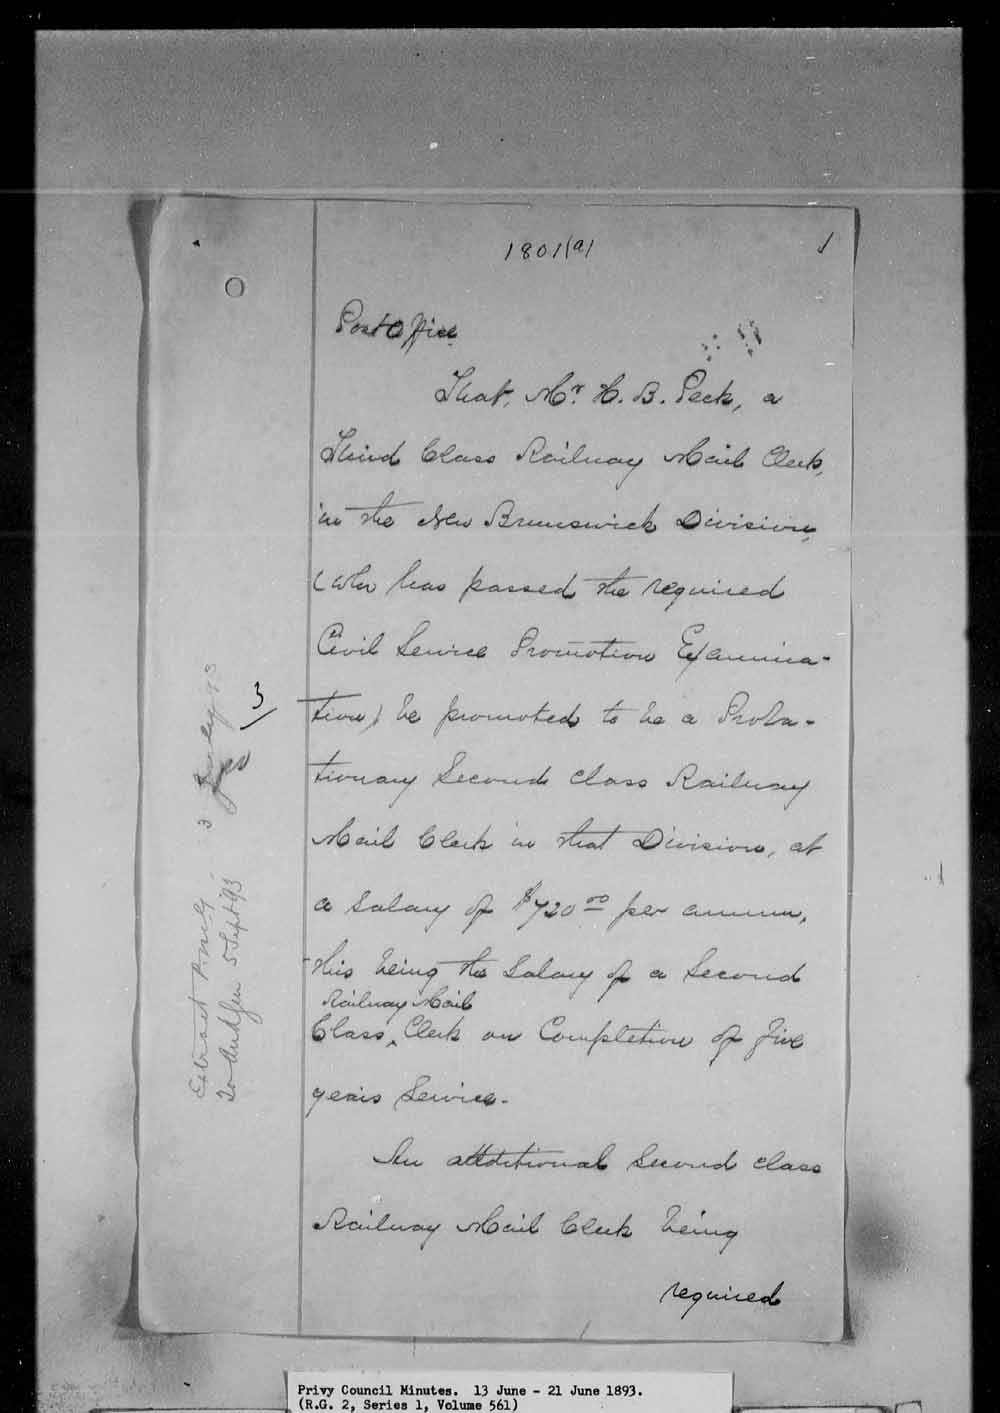 1801(a) 1
Post Office
That, Mr. H. B. Peck, a
Third Class Railway Mail Clerk,
in the New Brunswick Division,
(who has passed the required
Civil Service Promotion Examina-
tion) be promoted to be a Proba-
tionary Second Class Railway
Mail Clerk in that Division, at
a salary of $720 00 per annum,
this being the Salary of a Second
Railway Mail
Class ^ Clerk on Completion of five
years Service.
An additional Second Class
Railway Mail Clerk being
required
3
Extract
To Aud Gen 5 Sept 93
Privy Council Minutes. 13 June - 21 June 1893.
(R.G. 2, Series 1, Volume 561)